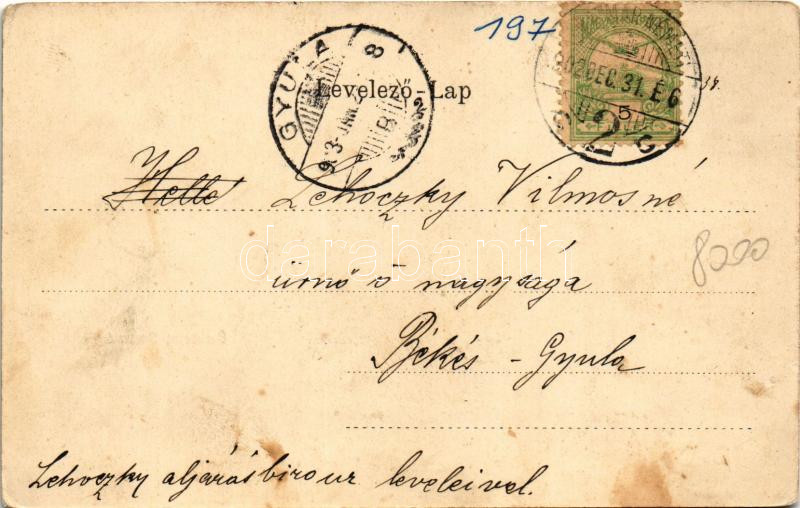 197
Levelező-Lap
GYULA
903 JAN. 8
B
902 DEC. 31. É6
2
5
Lehoczky Vilmosné
úrnő ő nagysága
Békés - Gyula
8000
Lehoczky aljárásbiró ur leveleivel.
darabanth